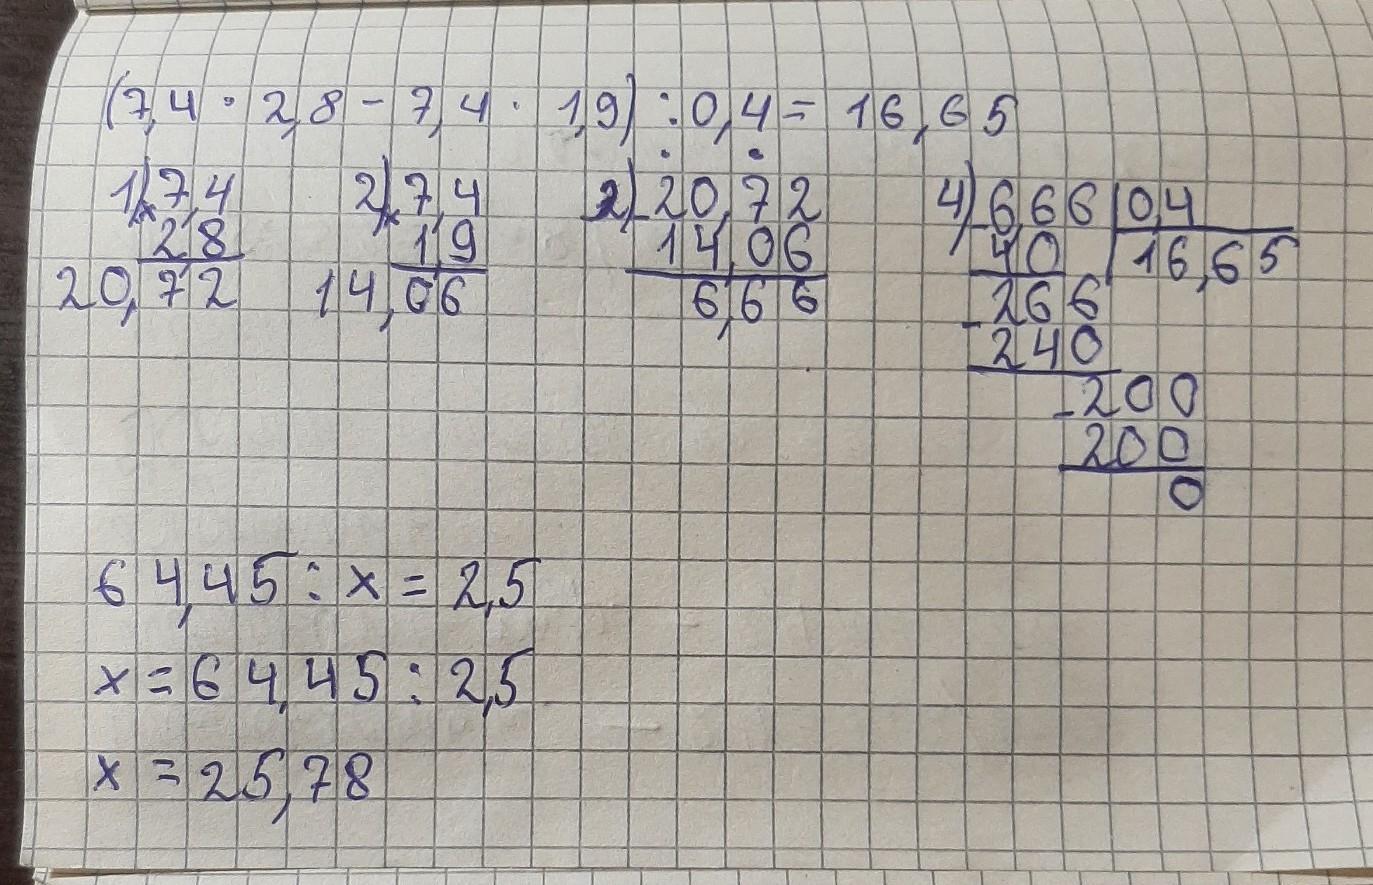 (7,4 · 2,8 - 7,4 · 1,9) : 0,4 = 16,65
1) 7,4 2) 7,4 2) 20,72 4) 6,66 0,4
× 2,8 × 1,9 - 14,06 - 40 16,65
20,72 14,06 6,66 266
- 240
- 200
200
0
64,45 : x = 2,5
x = 64,45 : 2,5
x = 25,78